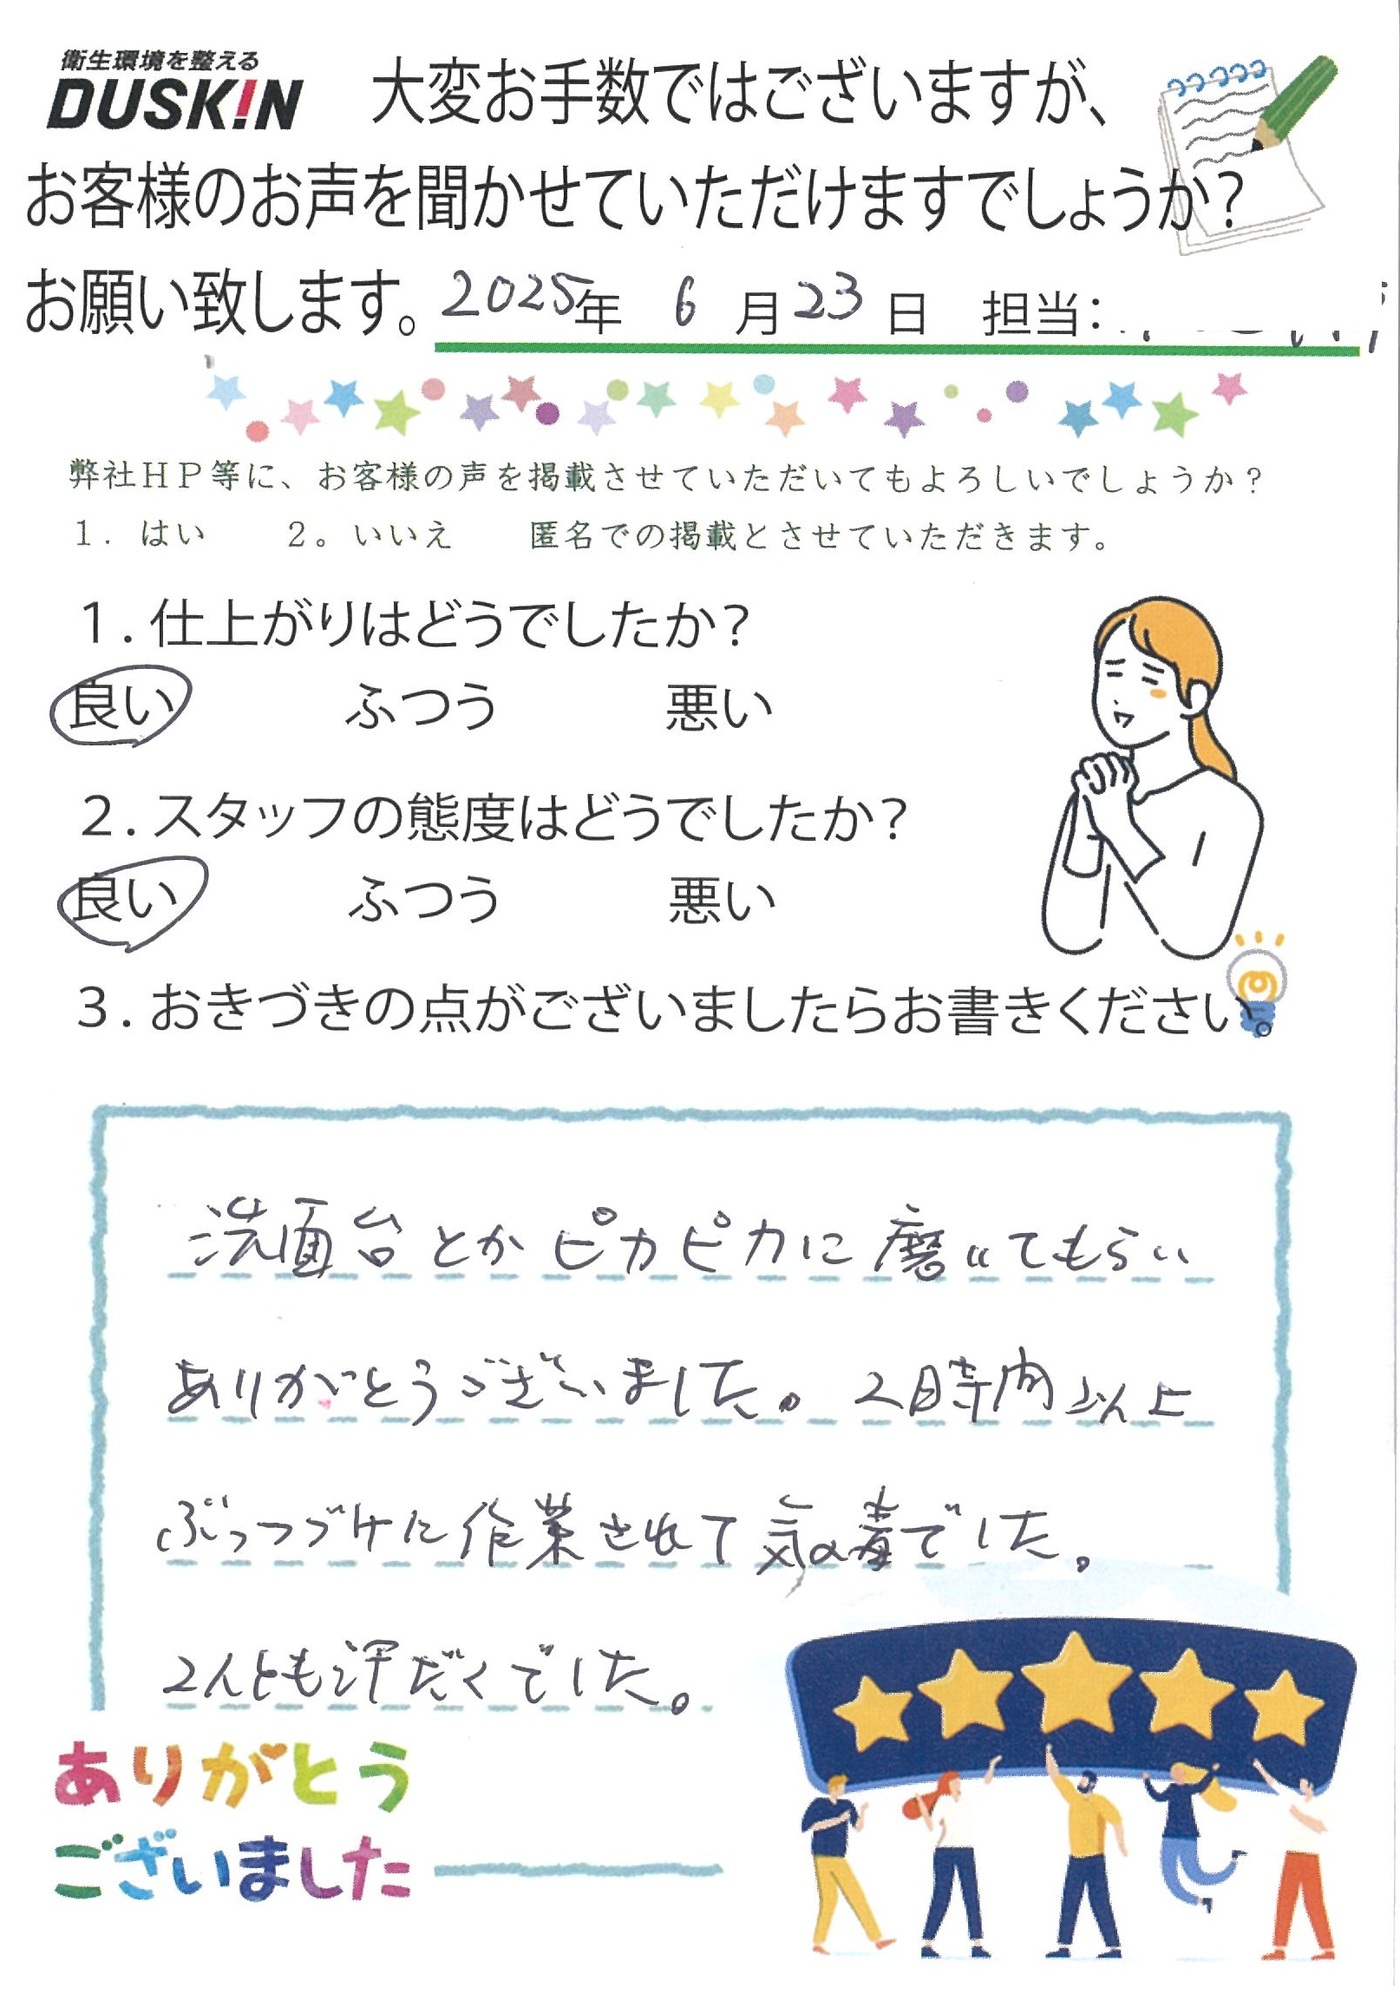 衛生環境を整える
DUSKIN 大変お手数ではございますが、
お客様のお声を聞かせていただけますでしょうか？
お願い致します。2025年 6月23日 担当：
弊社ＨＰ等に、お客様の声を掲載させていただいてもよろしいでしょうか？
１．はい ２。いいえ 匿名での掲載とさせていただきます。
１．仕上がりはどうでしたか？
良い ふつう 悪い
２．スタッフの態度はどうでしたか？
良い ふつう 悪い
３．おきづきの点がございましたらお書きください
洗面台とかピカピカに磨いてもらい
ありがとうございました。2時間以上
ぶっつづけに作業されて気の毒でした。
2人とも汗だくでした。
ありがとう
ございました